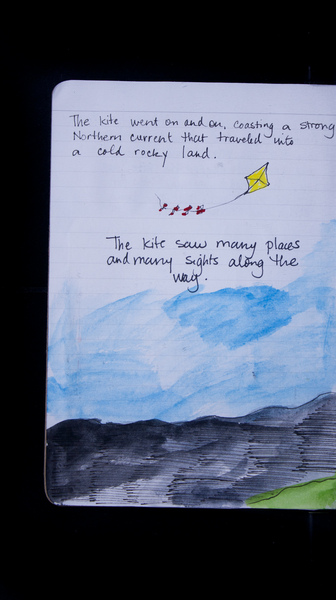 The kite went on and on, coasting a strong
Northern current that traveled into
a cold rocky land.
The kite saw many places
and many sights along the
way.